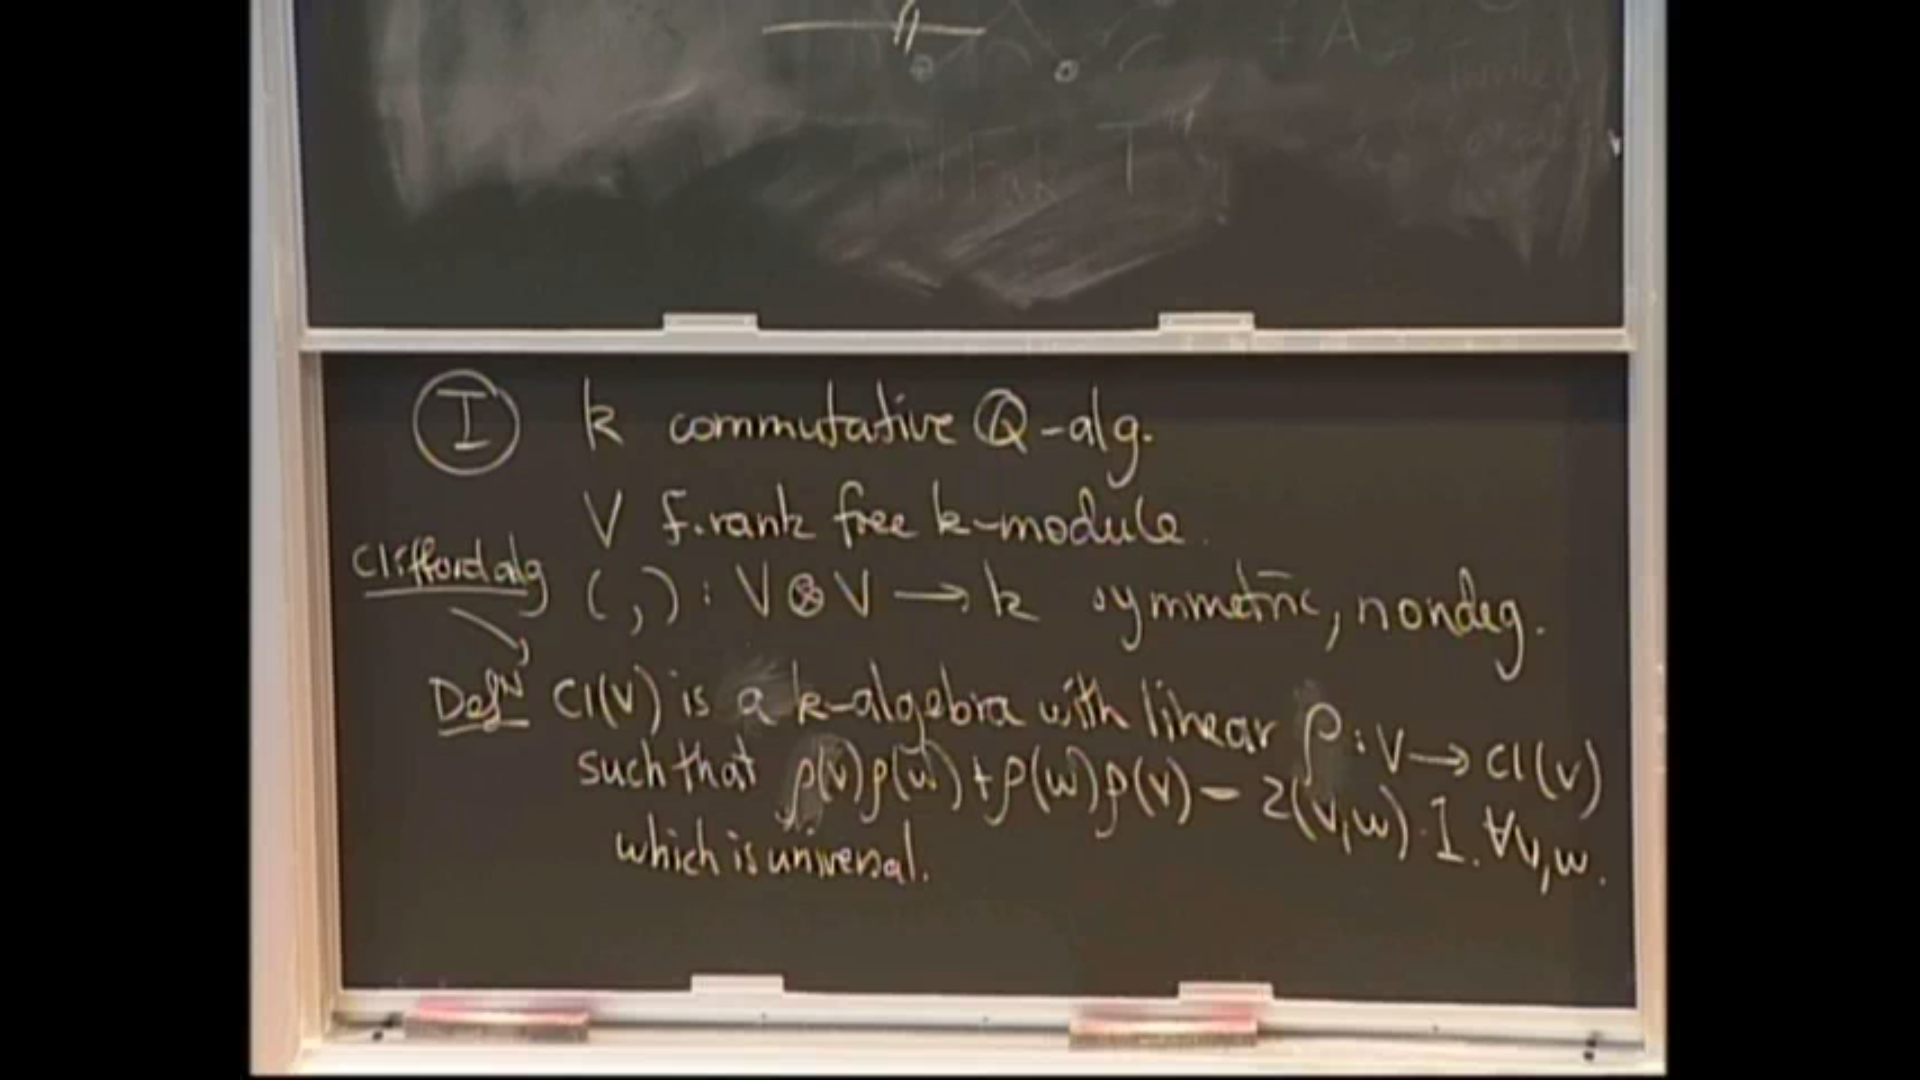 I k commutative Q-alg.
V f.rank free k-module.
Clifford alg
( , ) : V ⊗ V → k symmetric, nondeg.
Defᴺ Cl(V) is a k-algebra with linear ρ : V → Cl(V)
such that ρ(v)ρ(w) + ρ(w)ρ(v) = 2(v,w)·1. ∀v,w.
which is universal.